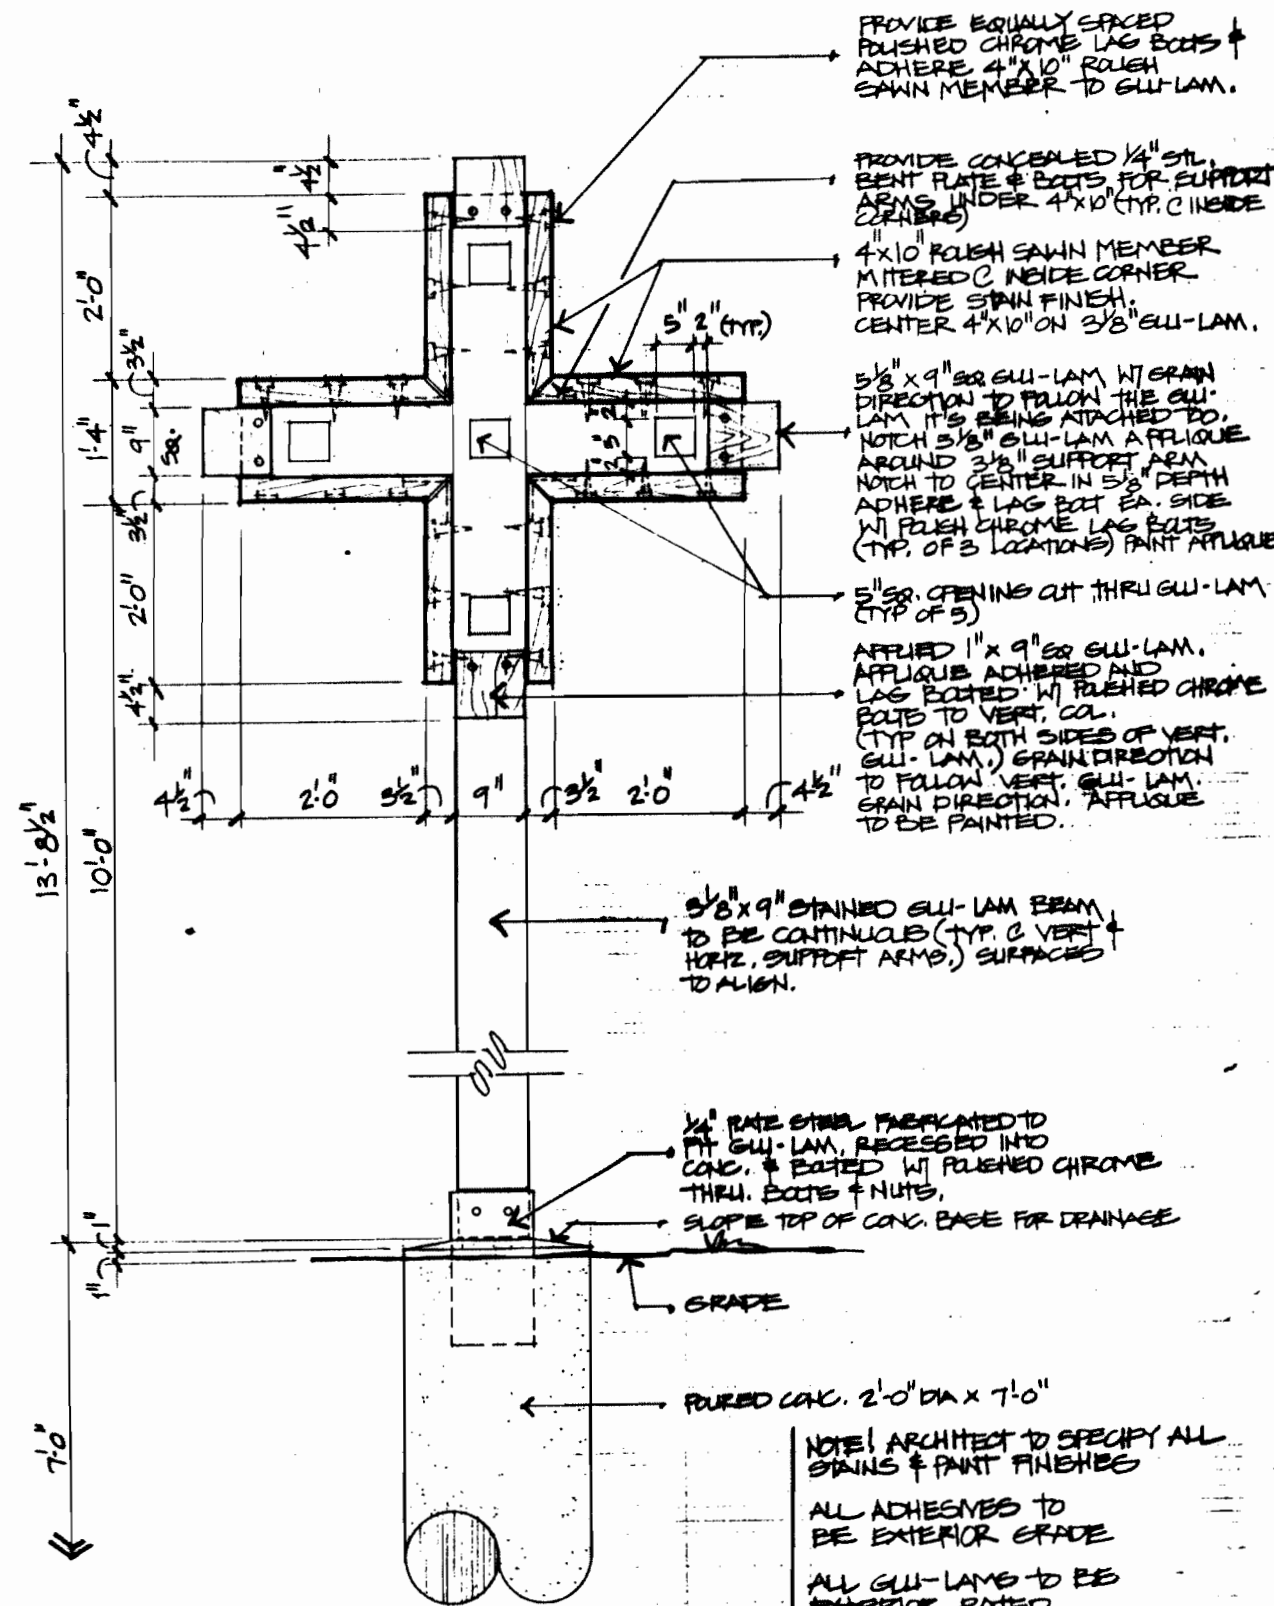 PROVIDE EQUALLY SPACED
POLISHED CHROME LAG BOLTS &
ADHERE 4"X10" ROUGH
SAWN MEMBER TO GLU-LAM.
PROVIDE CONCEALED 1/4" STL.
BENT PLATE & BOLTS FOR SUPPORT
ARMS UNDER 4"X10" (TYP. @ INSIDE
CORNERS)
4"X10" ROUGH SAWN MEMBER
MITERED @ INSIDE CORNER
PROVIDE STAIN FINISH.
CENTER 4"X10" ON 3 1/8" GLU-LAM.
5 1/8" X 9" SQ GLU-LAM W/ GRAIN
DIRECTION TO FOLLOW THE GLU-
LAM IT'S BEING ATTACHED TOO.
NOTCH 5 1/8" GLU-LAM APPLIQUE
AROUND 3 1/8" SUPPORT ARM
NOTCH TO CENTER IN 5 1/8" DEPTH
ADHERE & LAG BOLT EA. SIDE
W/ POLISH CHROME LAG BOLTS
(TYP. OF 3 LOCATIONS) PAINT APPLIQUE
5" SQ. OPENING CUT THRU GLU-LAM
(TYP OF 5)
APPLIED 1" X 9" SQ GLU-LAM.
APPLIQUE ADHERED AND
LAG BOLTED W/ POLISHED CHROME
BOLTS TO VERT. COL.
(TYP ON BOTH SIDES OF VERT.
GLU-LAM.) GRAIN DIRECTION
TO FOLLOW VERT. GLU-LAM.
GRAIN DIRECTION. APPLIQUE
TO BE PAINTED.
3 1/8" X 9" STAINED GLU-LAM BEAM
TO BE CONTINUOUS (TYP. @ VERT &
HORIZ. SUPPORT ARMS.) SURFACES
TO ALIGN.
1/4" PLATE STEEL FABRICATED TO
FIT GLU-LAM, RECESSED INTO
CONC. & BOLTED W/ POLISHED CHROME
THRU. BOLTS & NUTS.
SLOPE TOP OF CONC. BASE FOR DRAINAGE
GRADE
POURED CONC. 2'-0" DIA X 7'-0"
NOTE! ARCHITECT TO SPECIFY ALL
STAINS & PAINT FINISHES
ALL ADHESIVES TO
BE EXTERIOR GRADE
ALL GLU-LAMS TO BE
EXTERIOR RATED
4 1/2"
4 1/2"
4 1/2"
2'-0"
3 1/2"
1'-4"
9"
SQ.
3 1/2"
2'-0"
4 1/2"
5" 2" (TYP.)
2"
5"
2"
4 1/2" 2'-0" 3 1/2" 9" 3 1/2" 2'-0" 4 1/2"
13'-8 1/2"
10'-0"
1"
1"
7'-0"